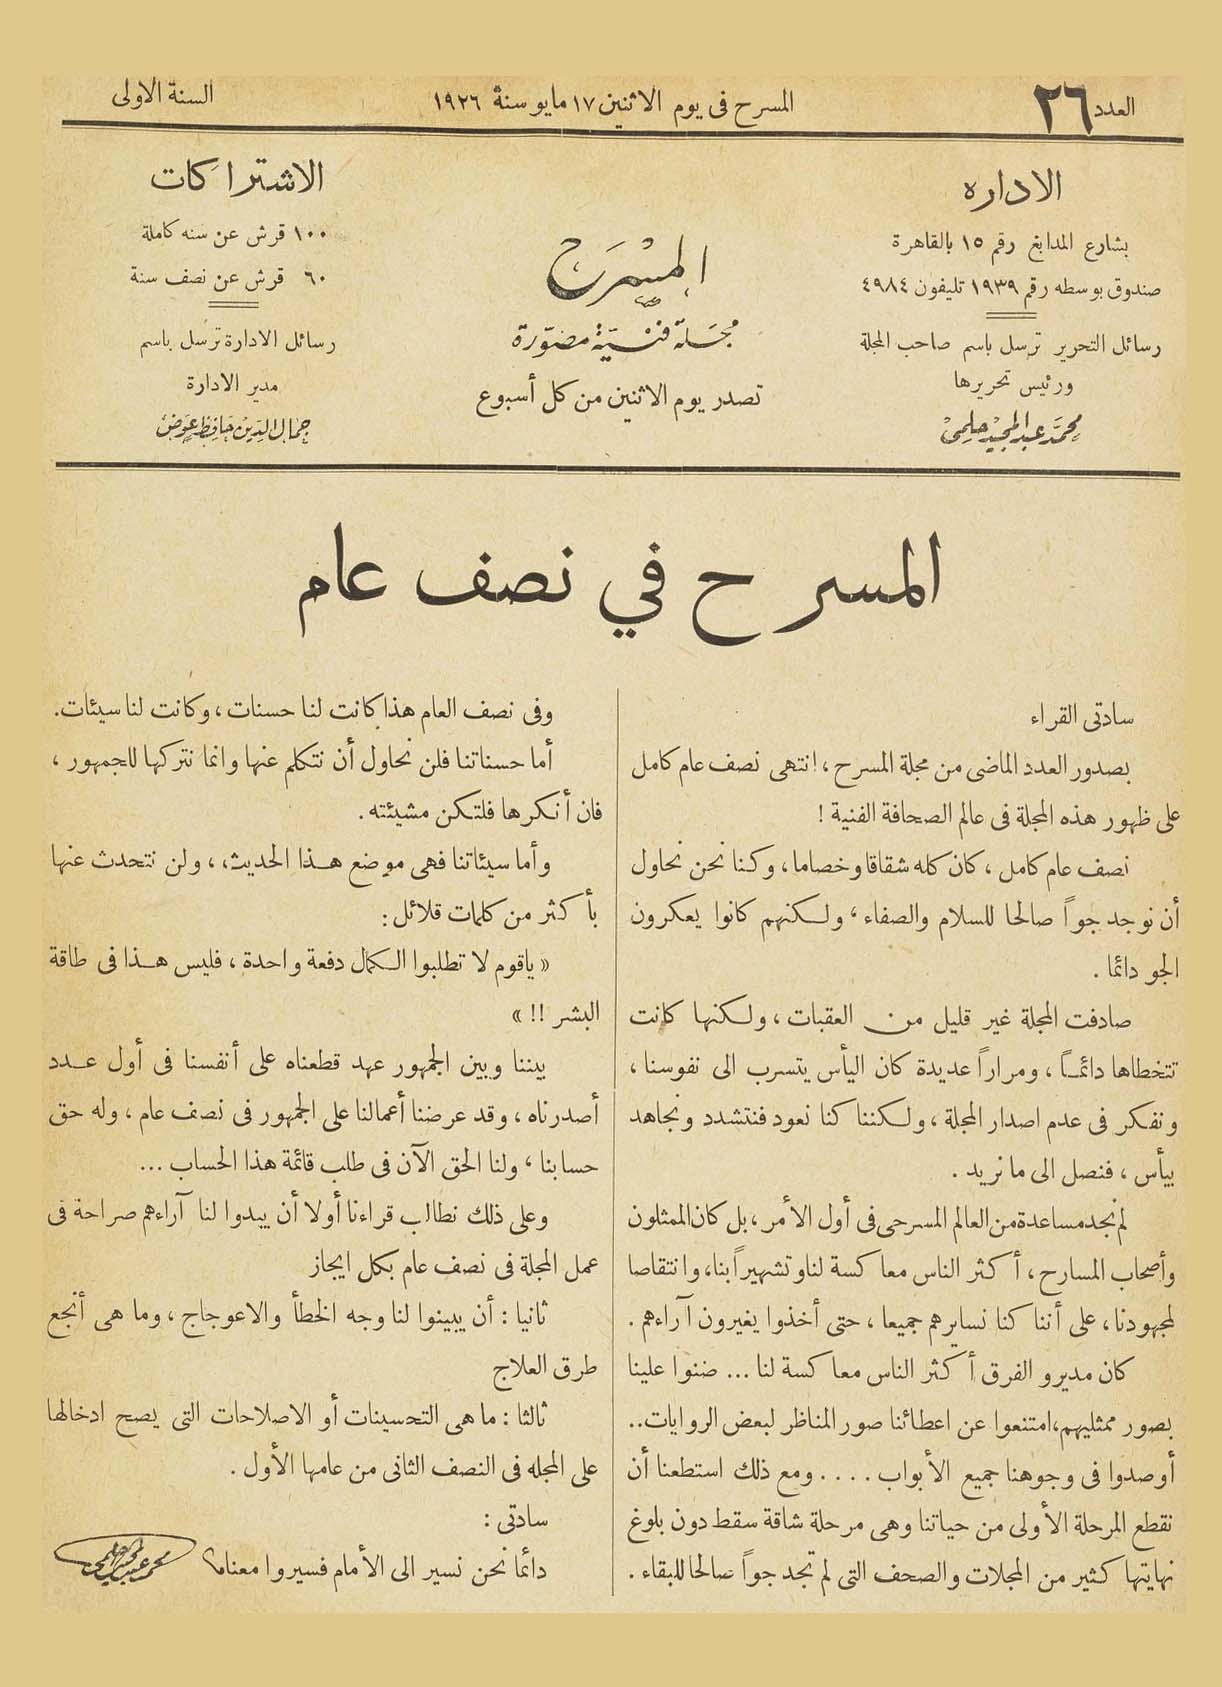 العدد ٢٦
المسرح فى يوم الاثنين ١٧ مايو سنة ١٩٢٦
السنة الاولى
الاداره
بشارع المدابغ رقم ١٥ بالقاهرة
صندوق بوسطه رقم ١٩٣٩ تليفون ٤٩٨٤
رسائل التحرير ترسل باسم صاحب المجلة
ورئيس تحريرها
محمد عبد المجيد حلمى
المسرح
مجلة فنية مصورة
تصدر يوم الاثنين من كل أسبوع
الاشتراكات
١٠٠ قرش عن سنه كاملة
٦٠ قرش عن نصف سنة
رسائل الادارة ترسل باسم
مدير الادارة
جمال الدين حافظ عوض
المسرح في نصف عام
سادتى القراء
بصدور العدد الماضى من مجلة المسرح ، انتهى نصف عام كامل
على ظهور هذه المجلة فى عالم الصحافة الفنية !
نصف عام كامل ، كان كله شقاقا وخصاما ، وكنا نحن نحاول
أن نوجد جواً صالحا للسلام والصفاء ، ولكنهم كانوا يعكرون
الجو دائما .
صادفت المجلة غير قليل من العقبات ، ولكنها كانت
تتخطاها دائماً ، ومراراً عديدة كان اليأس يتسرب الى نفوسنا ،
ونفكر فى عدم اصدار المجلة ، ولكننا كنا نعود فنتشدد ونجاهد
بيأس ، فنصل الى ما نريد .
لم نجد مساعدة من العالم المسرحى فى أول الأمر ، بل كان الممثلون
وأصحاب المسارح ، أكثر الناس معاكسة لنا وتشهيراً بنا ، وانتقاصا
لمجهودنا ، على أننا كنا نسايرهم جميعا ، حتى أخذوا يغيرون آراءهم .
كان مديرو الفرق أكثر الناس معاكسة لنا ... ضنوا علينا
بصور ممثليهم ، امتنعوا عن اعطائنا صور المناظر لبعض الروايات ..
أوصدوا فى وجوهنا جميع الأبواب .... ومع ذلك استطعنا أن
نقطع المرحلة الأولى من حياتنا وهى مرحلة شاقة سقط دون بلوغ
نهايتها كثير من المجلات والصحف التى لم تجد جواً صالحا للبقاء .
وفى نصف العام هذا كانت لنا حسنات ، وكانت لنا سيئات .
أما حسناتنا فلن نحاول أن نتكلم عنها وانما نتركها للجمهور ،
فان أنكرها فلتكن مشيئته .
وأما سيئاتنا فهى موضع هذا الحديث ، ولن نتحدث عنها
بأكثر من كلمات قلائل :
« ياقوم لا تطلبوا الكمال دفعة واحدة ، فليس هذا فى طاقة
البشر !! »
بيننا وبين الجمهور عهد قطعناه على أنفسنا فى أول عدد
أصدرناه ، وقد عرضنا أعمالنا على الجمهور فى نصف عام ، وله حق
حسابنا ، ولنا الحق الآن فى طلب قائمة هذا الحساب ...
وعلى ذلك نطالب قراءنا أولا أن يبدوا لنا آراءهم صراحة فى
عمل المجلة فى نصف عام بكل ايجاز
ثانيا : أن يبينوا لنا وجه الخطأ والاعوجاج ، وما هى أنجع
طرق العلاج
ثالثا : ما هى التحسينات أو الاصلاحات التى يصح ادخالها
على المجله فى النصف الثانى من عامها الأول .
سادتى :
دائما نحن نسير الى الأمام فسيروا معنا؟
محمد عبد المجيد حلمى